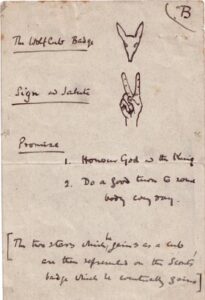 B
The Wolf Cub Badge
Sign & Salute
Promise
1. Honour God & the King
2. Do a good turn to some
body every day.
[The two stars which he gains as a cub
are then represented on the Scouts
badge which he eventually gains]